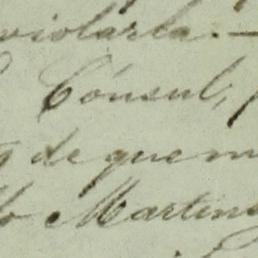 violarla. —
Cónsul,
de quem
Martins